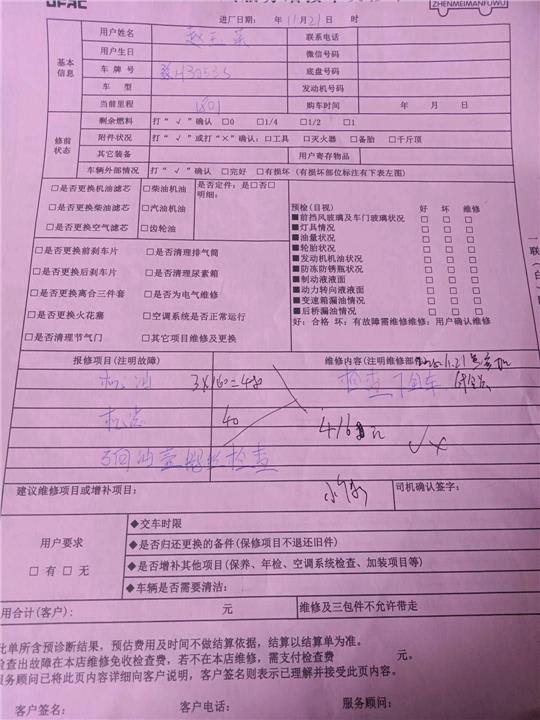 ZHENMEIMANFUWU
进厂日期： 年 11月21日 时
基本信息
用户姓名 联系电话
用户生日 微信号码
车 牌 号 底盘号码
车 型 发动机号码
当前里程 1801 购车时间 年 月 日
修前状态
剩余燃料 打“ √ ”确认 □0 □1/4 □1/2 □1
附件状况 打“ √ ”或打“×”确认：□工具 □灭火器 □备胎 □千斤顶
其它装备 用户寄存物品
车辆外部情况 打“ √ ”确认 □完好 □有损坏（有损坏部位标注有下表左图）
□是否更换机油滤芯 □柴油机油 是否定件：是□否□
明细：
□是否更换柴油滤芯 □汽油机油
□是否更换空气滤芯 □齿轮油
□是否更换前刹车片 □是否清理排气筒
□是否更换后刹车片 □是否清理尿素箱
□是否更换离合三件套 □是否为电气维修
□是否更换火花塞 □空调系统是否正常运行
□是否清理节气门 □其它项目维修及更换
预检（目视） 好 坏 维修
■前挡风玻璃及车门玻璃状况 □ □ □
■灯具情况 □ □ □
■油量状况 □ □ □
■轮胎状况 □ □ □
■发动机机油状况 □ □ □
■防冻防锈瓶状况 □ □ □
■制动液液面 □ □ □
■动力转向液液面 □ □ □
■变速箱漏油情况 □ □ □
■后桥漏油情况 □ □ □
好：合格 坏：有故障需维修维修：用户确认维修
报修项目（注明故障） 维修内容（注明维修部件
机油 3×160=480 检查下全车
机滤 40 416 元
检查
建议维修项目或增补项目： 司机确认签字：
用户要求
□ 有 □ 无
◆交车时限
◆是否归还更换的备件（保修项目不退还旧件）
◆是否增补其他项目（保养、年检、空调系统检查、加装项目等）
◆车辆是否需要清洁：
用合计（客户）： 元 维修及三包件不允许带走
此单所含预诊断结果，预估费用及时间不做结算依据，结算以结算单为准。
检查出故障在本店维修免收检查费，若不在本店维修，需支付检查费 元。
服务顾问已将此页内容详细向客户说明，客户签名则表示已理解并接受此页内容。
客户签名： 客户电话： 服务顾问：